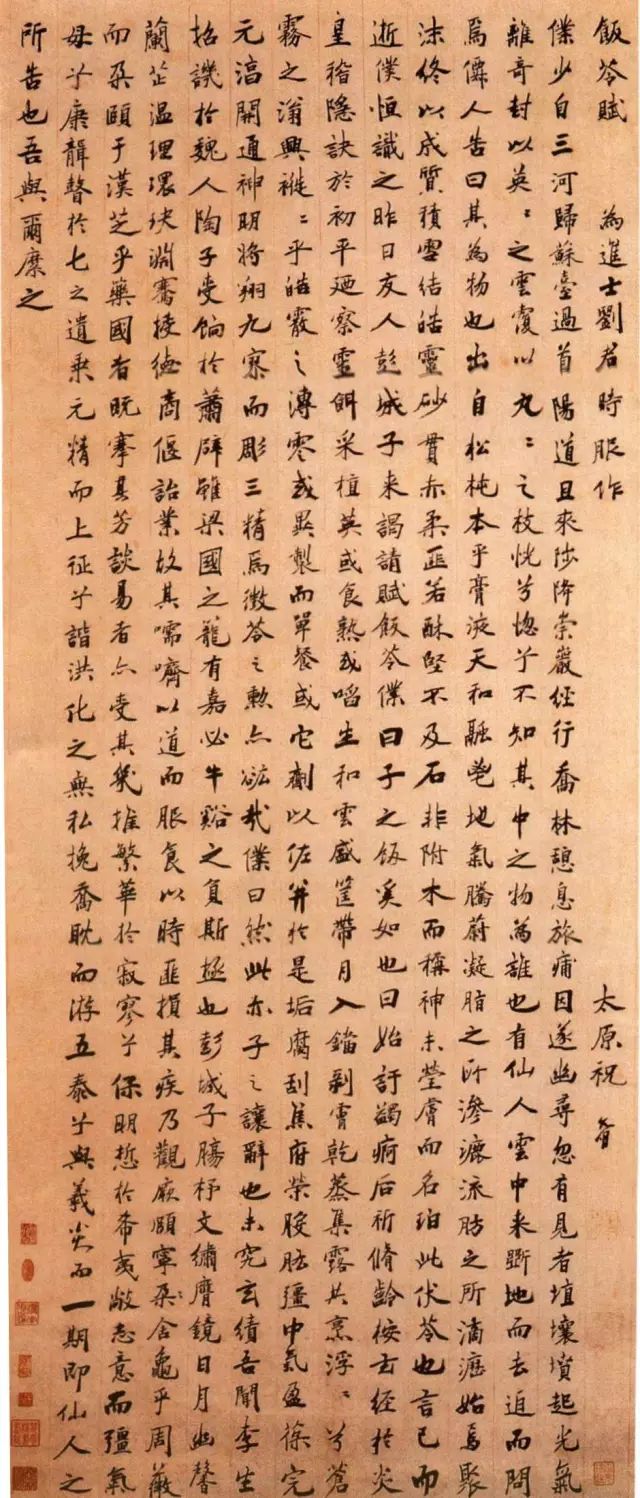 飯苓賦　為進士劉君時服作　太原祝
僕少自三河歸蘇臺過首陽道且來陟降崇巖經行喬林憩息旅痡因遂幽尋忽有見者埴壤墳起光氣
離奇封以英〻之雲覆以丸〻之枝恍兮惚兮不知其中之物為誰也有仙人雲中來斲地而去追而問
焉僊人告曰其為物也出自松杶本乎膏液天和融毓地氣騰蔚凝脂之所滲漉流肪之所滴瀝始焉聚
沫終以成質積雪結皓靈砂貫赤柔匪若酥堅不及石非附木而稱神未瑩膚而名珀此伏苓也言已而
逝僕恒識之昨日友人彭城子來謁請賦飯苓僕曰子之飯奚如也曰始訝蠲痾后祈脩齡按古經於炎
皇稽隱訣於初平廼察靈餌采植英或食熟或啗生和雲盛筐帶月入鐺剝膚乾蒸集露共烹浮〻兮蒼
霧之滃興褷〻乎皓霰之漙零或異製而單餐或它劑以佐并於是垢腐刮焦府榮股肱彊中氣盈葆完
元滈開通神明將翔九寥而彫三精焉微苓之勲亦紘哉僕曰然此亦子之讓辭也未究玄績吾聞李生
招譏於魏人陶子受餉於蕭辟雖梁國之籠有嘉必牛谿之負斯極也彭城子腸杼文繡膺鏡日月幽馨
蘭芷温理環玦淵騫接德商偃詒業故其嚅嚌以道而服食以時匪損其疾乃觀厥頤寧朶含龜乎周薇
而朶頤于漢芝乎藥國者既搴其芳談易者亦受其幾摧繁華於寂寥兮保明悊於希夷敝志意而彊氣
母兮康韻聲於七之遺乘元精而上征兮諧洪化之無私挽喬耽而游五泰兮與羲炎而一期即仙人之
所告也吾與爾麋之